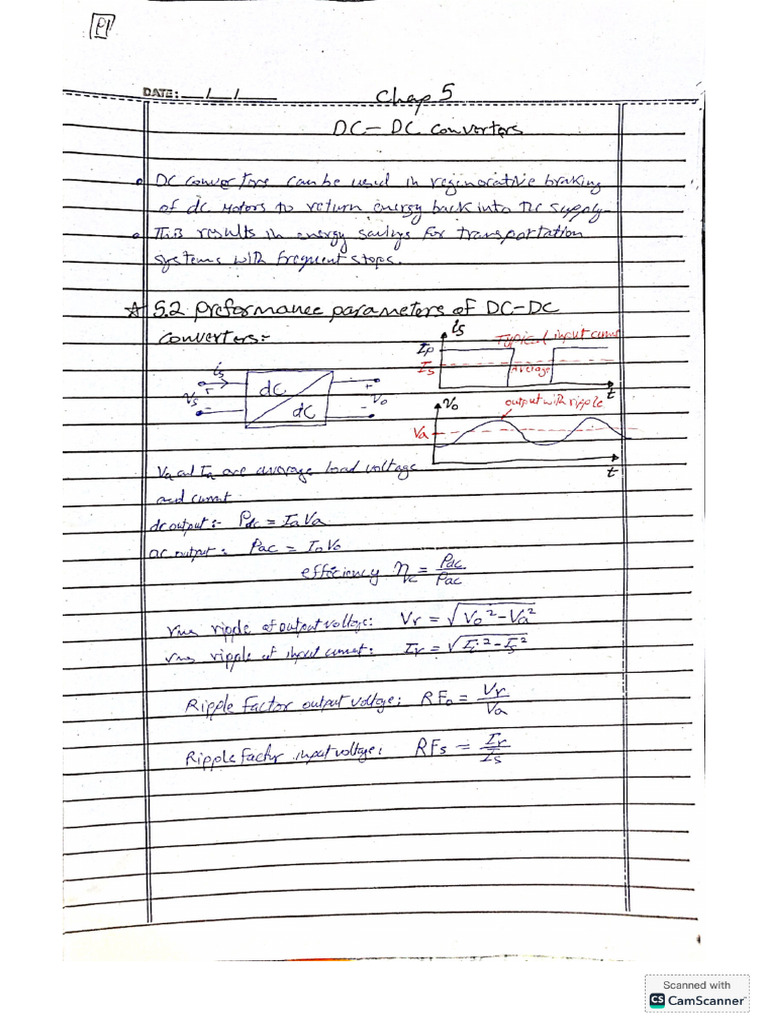 P1
DATE: __/__/____
Chap 5
DC-DC convertors
• DC convertors can be used in reginorative braking
of dc motors to return energy back into the supply
• This results in energy savings for transportation
systems with frequent stops.
☆ 5.2 preformance parameters of DC-DC
convertors:-
is
Ip
Is
Typical input curr
average
t
is
Vs
+
-
dc
dc
+
-
Vo
Vo
output with ripple
Va
t
Va and Ia are average load voltage
and current
dc output:- Pdc = Ia Va
ac output: Pac = Io Vo
efficiency ηc = Pdc/Pac
rms ripple of output voltage: Vr = √(Vo² - Va²)
rms ripple of input current: Ir = √(Ii² - Is²)
Ripple Factor output voltage: RFo = Vr/Va
Ripple factor input voltage: RFs = Ir/Is
Scanned with
CS CamScanner